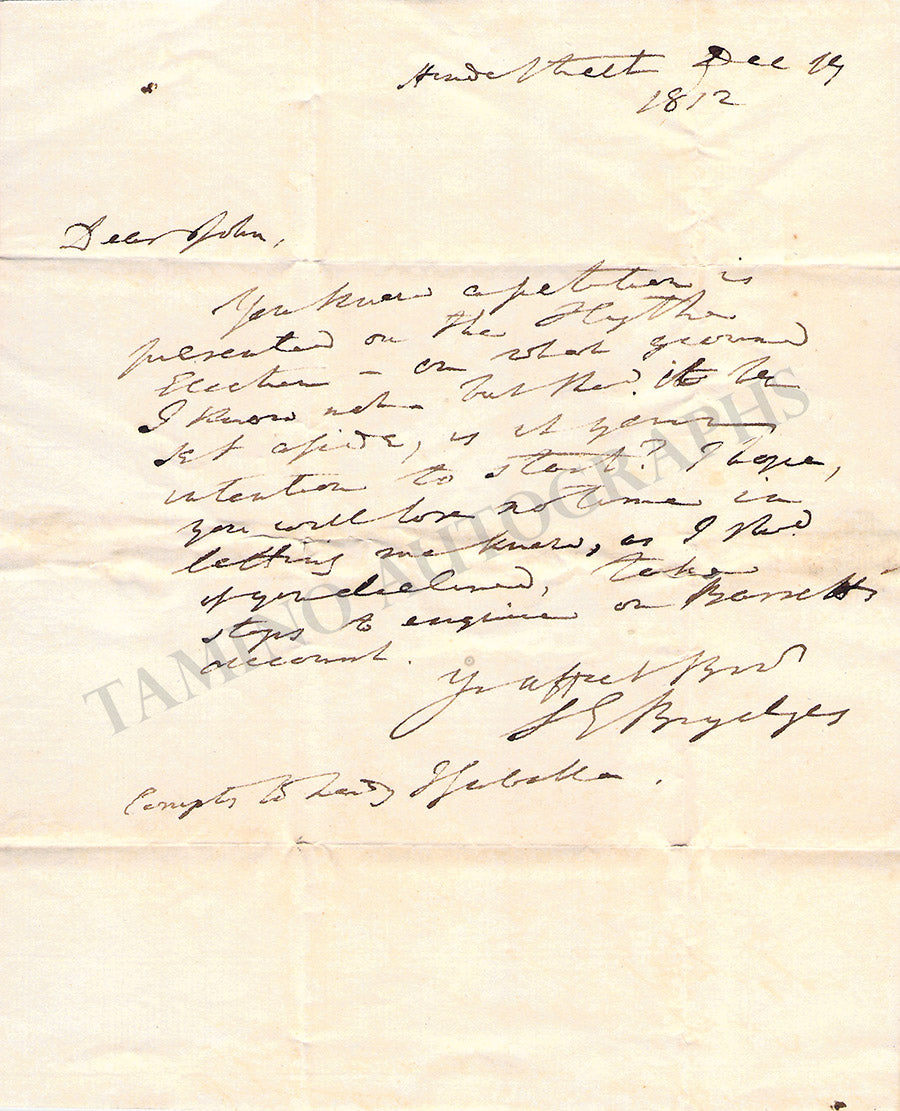 Hinde Street Dec 19
1812
Dear John,
You know a petition is
presented on the Hythe
Election – on what ground
I know not – but shd. it be
set aside, is it your
intention to start? I hope,
you will lose no time in
letting me know, as I shd.
if you declined, take
steps to enquire on Barrett's
account.
Yr affect Bror
S E Brydges
Compts to Lady Isabella.
TAMINO AUTOGRAPHS